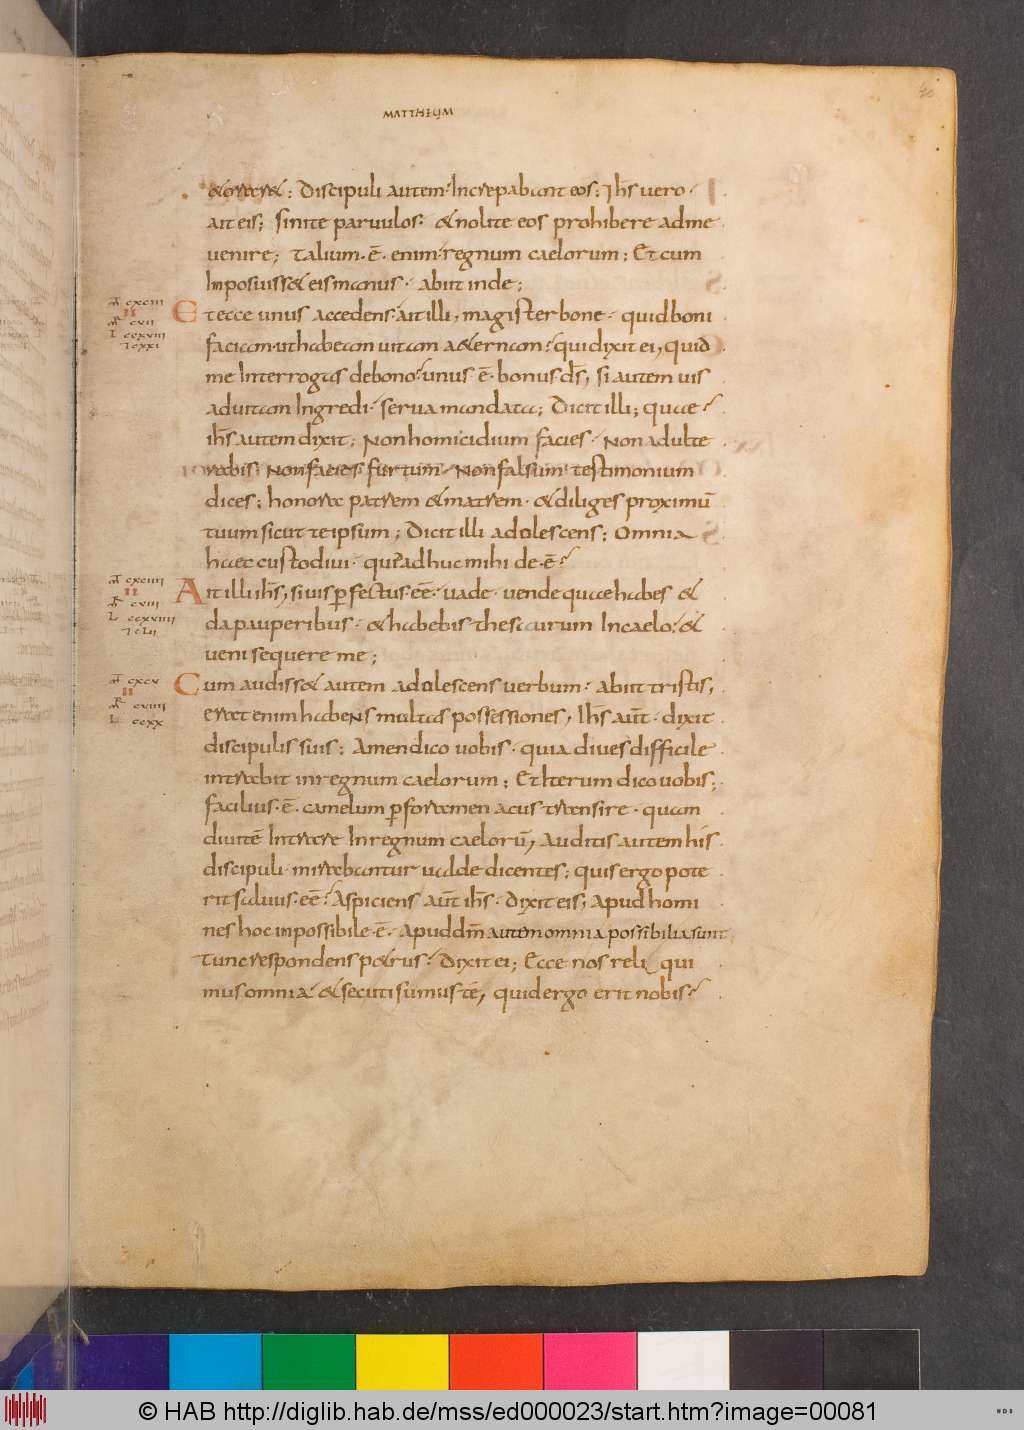 MATTHEUM
40
& oraret; Discipuli autem· Increpabant eos; Ihs̄ uero·
ait eis; sinite paruulos· & nolite eos prohibere ad me
uenire; Talium· ē· enim· regnum caelorum; Et cum
Imposuiss& eis manus· abiit inde;
Et ecce unus accedens· ait illi, magister bone· quid boni
faciam· ut habeam uitam a&ernam? qui dixit ei, quid
me Interrogas de bono? unus· ē· bonus· ds̄, si autem uis
ad uitam Ingredi· serua mandata; Dicit illi; quae?
ihs̄ autem dixit; Non homicidium facies· Non adulte
rabis; Non facies furtum· Non falsum testimonium
dices; honora patrem & matrem· & diliges proximū
tuum sicut te ipsum; Dicit illi adolescens; Omnia
haec custodiui· quid adhuc mihi de·ē?
Ait illi ihs̄, si uis ꝑfectus· eē· uade· uende quae habes &
da pauperibus· & habebis thesaurum In caelo· &
ueni sequere me;
Cum audiss& autem adolescens uerbum· abiit tristis,
erat enim habens multas possessiones, Ihs̄ aūt· dixit
discipulis suis; Amen dico uobis· quia diues difficile
intrabit in regnum caelorum; Et Iterum dico uobis;
facilius· ē· camelum ꝑ foramen acus transire· quam
diuitē Intrare In regnum caelorū, Auditis autem his
discipuli· mirabantur ualde dicentes; quis ergo pote
rit saluus· eē? Aspiciens aūt ihs̄· dixit eis, Apud homi
nes hoc impossibile· ē· Apud dm̄ autem omnia possibilia sunt
Tunc respondens p&rus· Dixit ei; Ecce nos reli qui
mus omnia· & secuti sumus te, quid ergo erit nobis?
cxciii
II
cvii
L ccxviii
cxciiii
II
cviii
L ccxviiii
cxcv
II
cviiii
L ccxx
© HAB http://diglib.hab.de/mss/ed000023/start.htm?image=00081
WDB